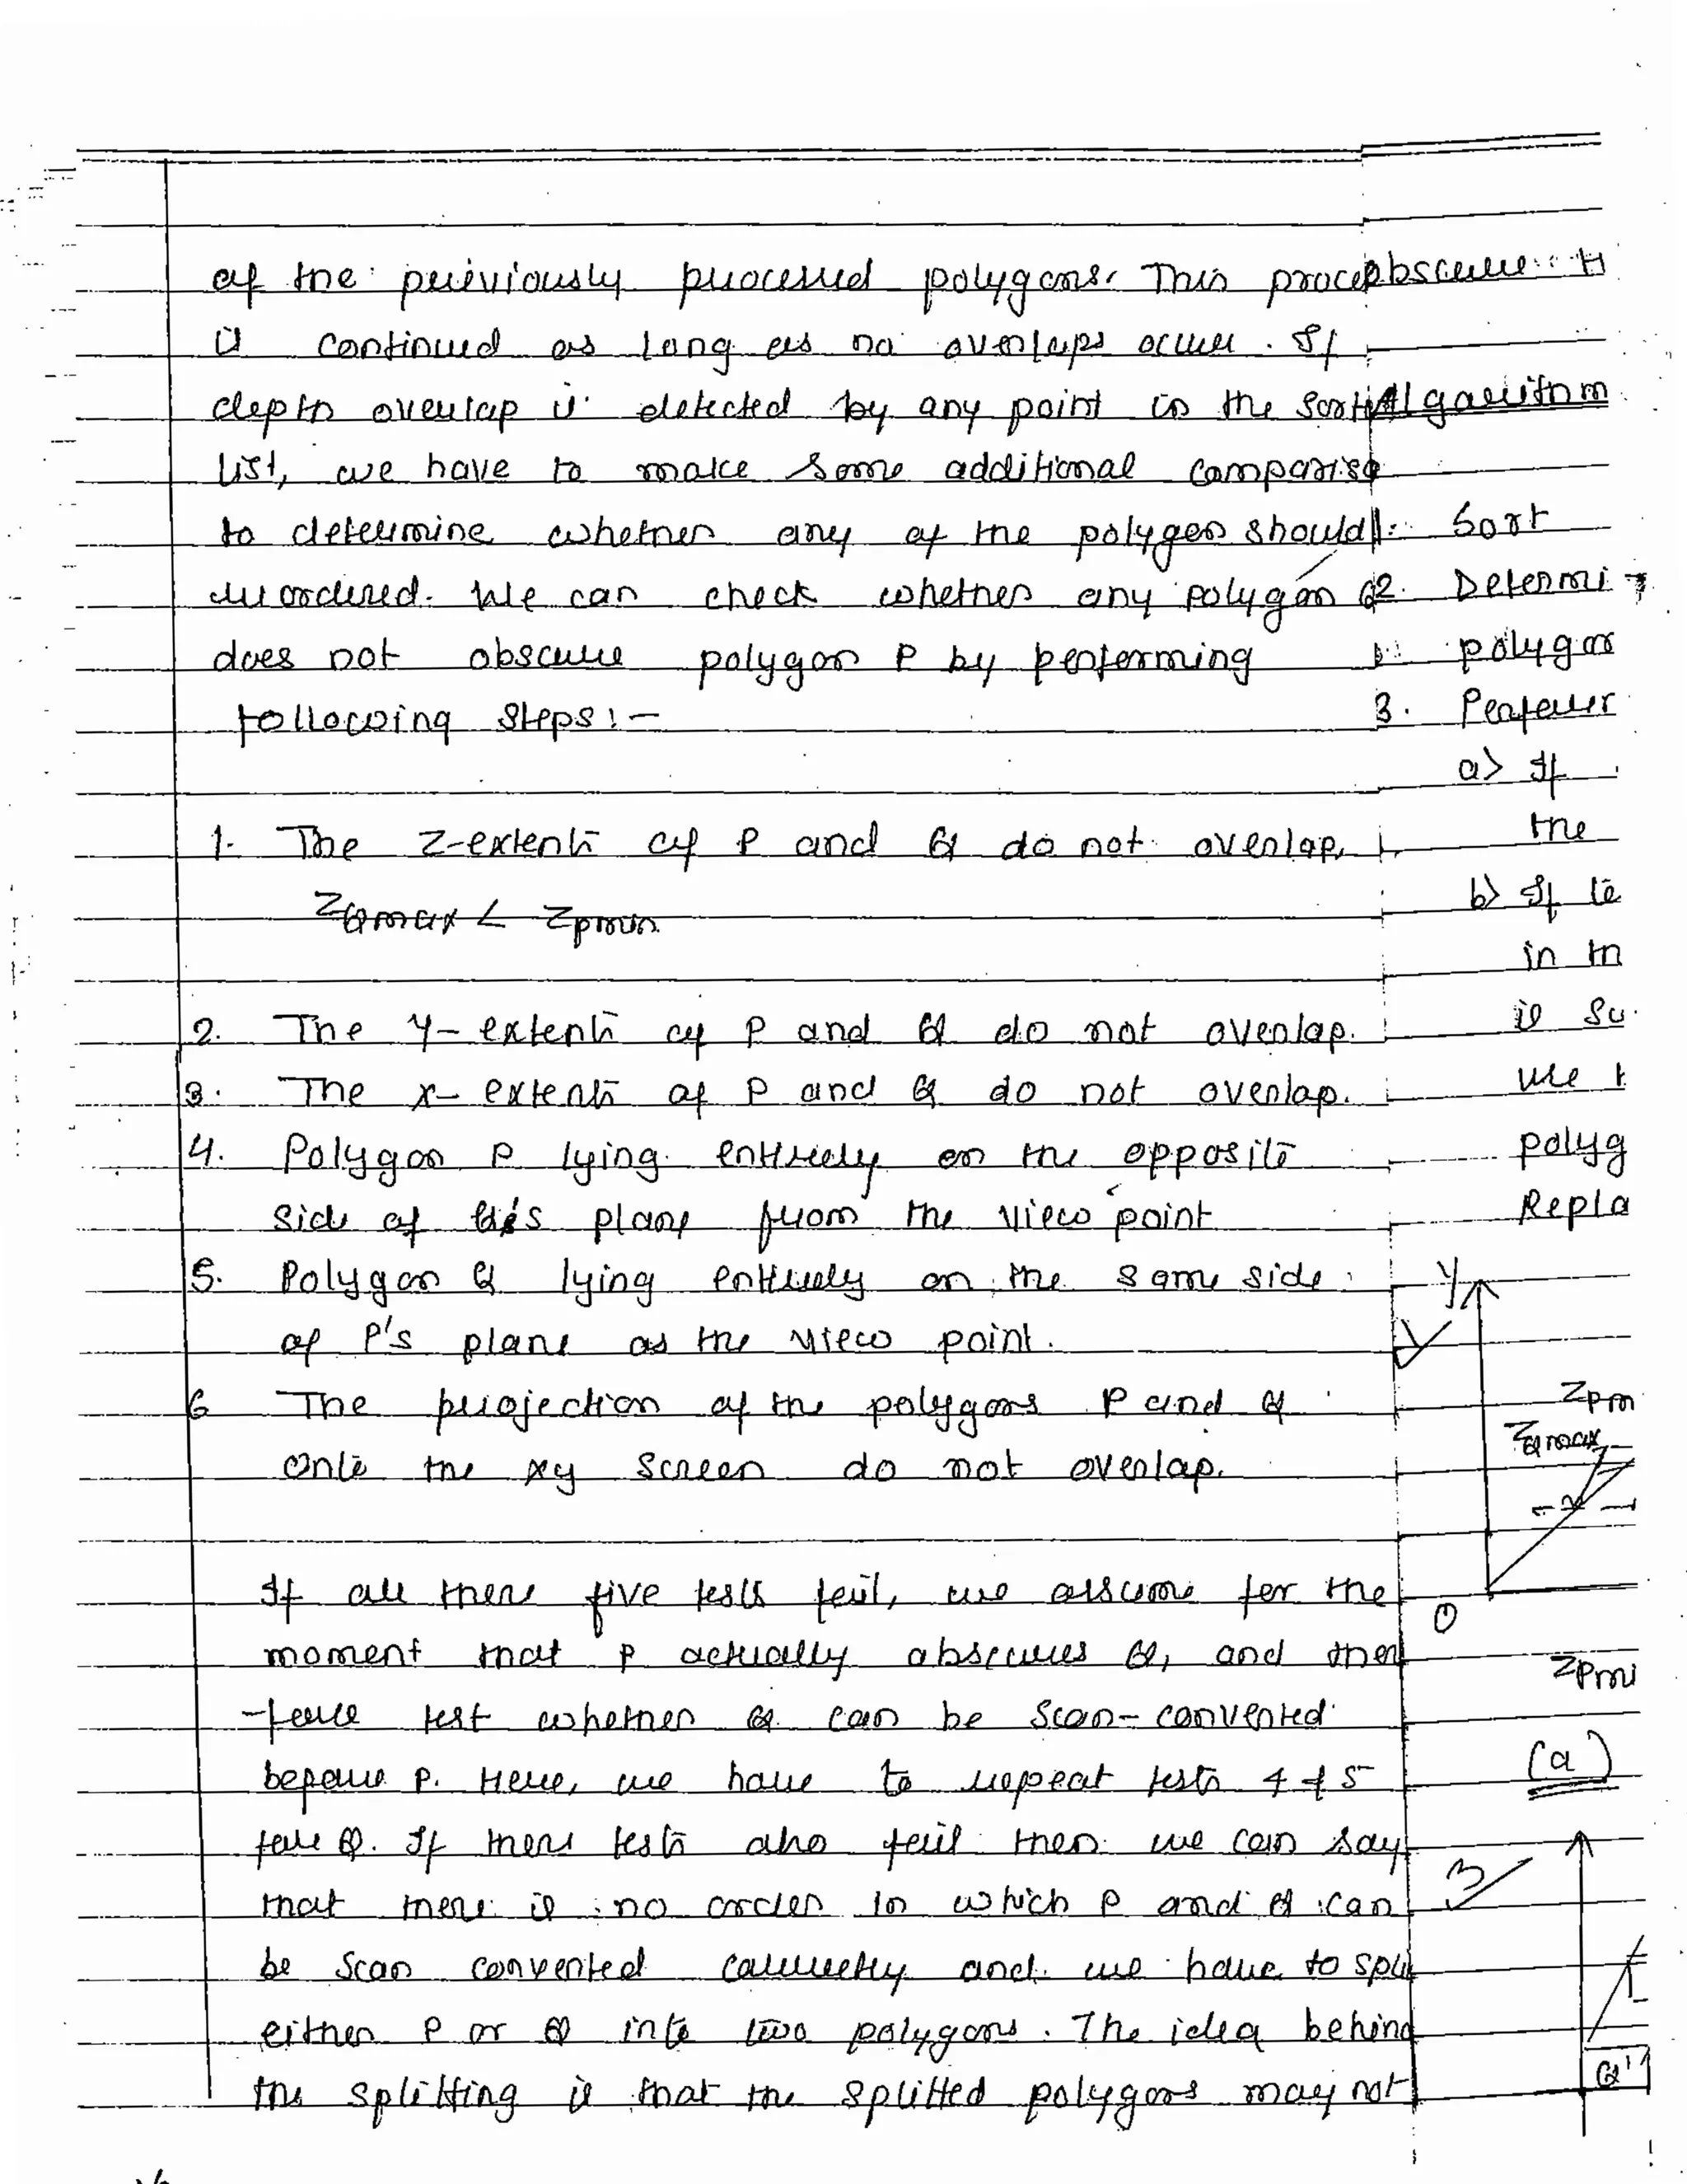 of the previously processed polygons. This proce
is continued as long as no overlaps occur. If
depth overlap is detected by any point in the sort
list, we have to make some additional comparis
to determine whether any of the polygon should
reordered. We can check whether any polygon Q
does not obscure polygon P by performing
following steps:-
1. The Z-extents of P and Q do not overlap,
ZQmax < ZPmin
2. The Y-extents of P and Q do not overlap.
3. The x-extents of P and Q do not overlap.
4. Polygon P lying entirely on the opposite
side of Q's plane from the view point
5. Polygon Q lying entirely on the same side
of P's plane as the view point.
6 The projection of the polygons P and Q
onto the xy screen do not overlap.
If all these five tests fail, we assume for the
moment that P actually obscures Q, and ther
-fore test whether Q can be scan-converted
before P. Here, we have to repeat tests 4 & 5
for Q. If these tests also fail then we can say
that there is no order in which P and Q can
be scan converted correctly and we have to spli
either P or Q into two polygons. The idea behind
the splitting is that the splitted polygons may not
obscure
Algorithm
1. Sort
2. Determi
polygo
3. Perfor
a) If
the
b) If te
in th
is Su
we t
polyg
Repla
Y
ZPm
ZQmax
0
ZPmi
(a)
Q'